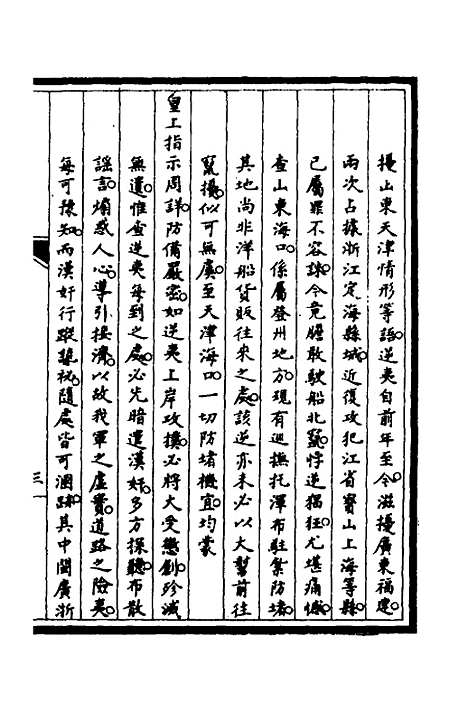 擾山東天津情形等語逆夷自前年至今滋擾廣東福建
兩次占據浙江定海縣城近復攻犯江省寶山上海等縣
已屬罪不容誅今竟膽敢駛船北竄悖逆猖狂尤堪痛憾
查山東海口係屬登州地方現有巡撫托渾布駐紮防堵
其地尚非洋船貨販往來之處該逆亦未必以大幫前往
竄擾似可無虞至天津海口一切防堵機宜均蒙
皇上指示周詳防備嚴密如逆夷上岸攻撲必將大受懲創殄滅
無遺惟查逆夷每到之處必先暗遣漢奸多方探聽布散
謠言煽惑人心導引接濟以故我軍之虛實道路之險夷
每可豫知而漢奸行蹤詭祕隨處皆可溷跡其中閩廣浙
三